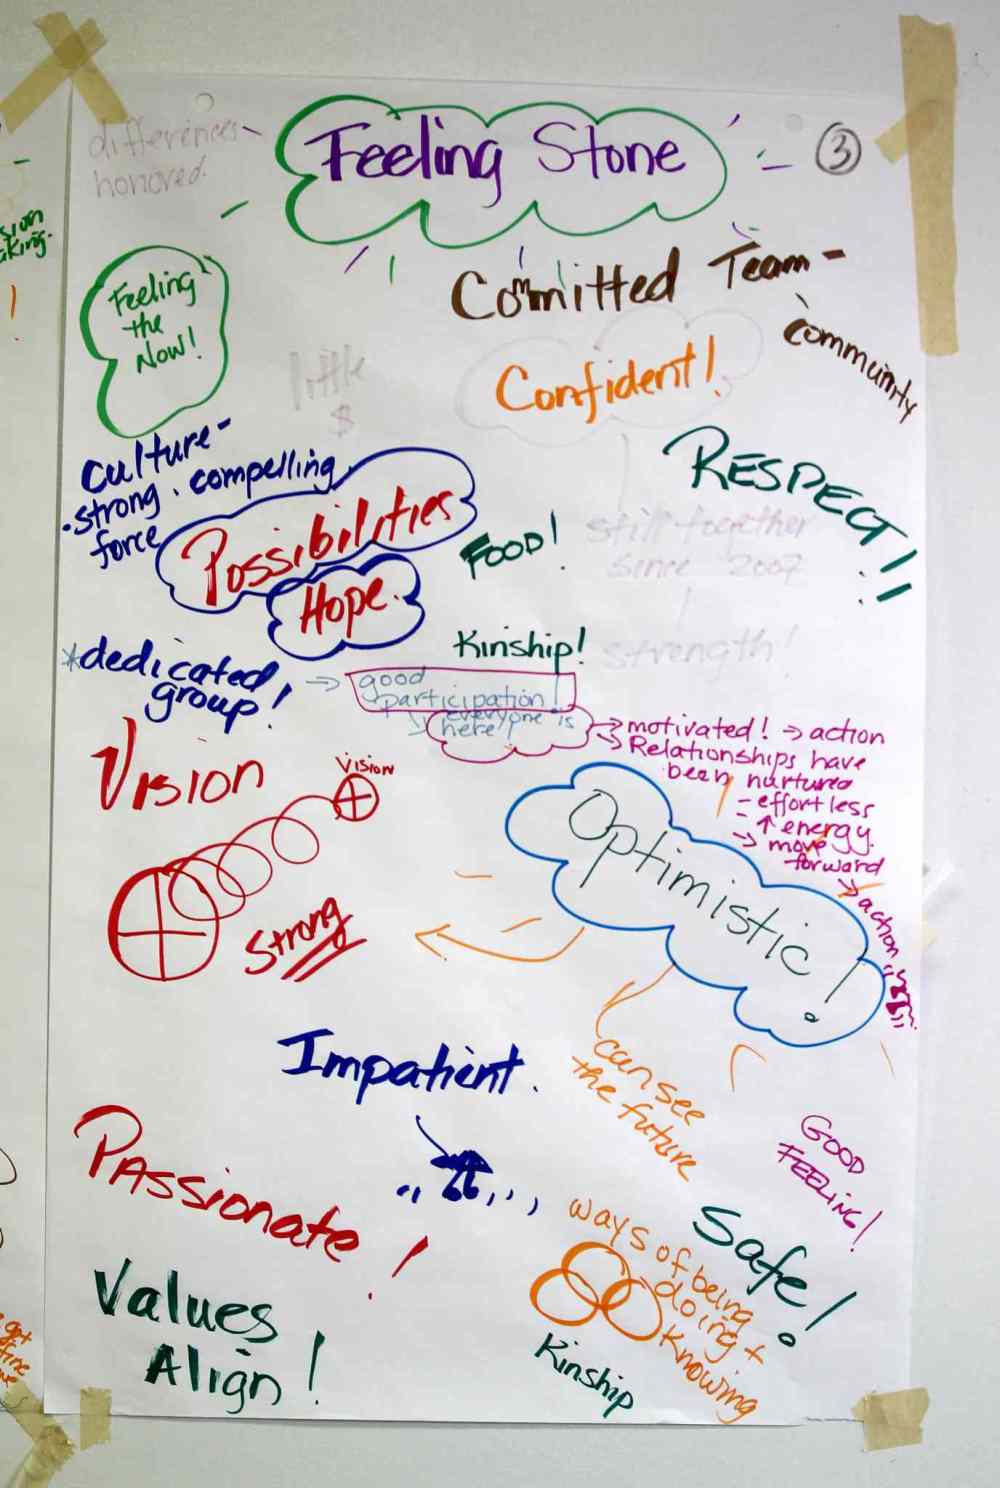 differences
honored.
Feeling Stone
3
Feeling
the
Now!
Committed Team -
community
Confident!
little
$
culture -
• strong, compelling
force
Possibilities
Hope.
RESPECT!!
FOOD!
still together
since 2007
strength!
Kinship!
*dedicated
group!
→ good
participation!
→ everyone is
here!
→ motivated! → action
→ Relationships have
been nurtured
- effortless
- ↑ energy
→ move
forward
→ action
Vision
Vision
Strong
Optimistic!
can see
the future
Impatient.
GOOD
FEELING!
Passionate!
Safe!
ways of being
doing +
knowing
Kinship
Values
Align!